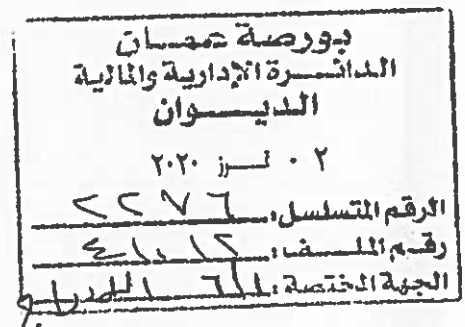 بورصة عمان
الدائرة الإدارية والمالية
الديوان
٠٢ تموز ٢٠٢٠
الرقم المتسلسل: ٢٢٧٦
رقم الملف:
الجهة المختصة: